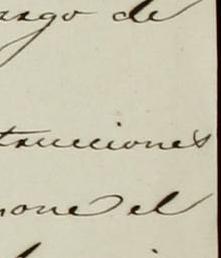 argo de
trucciones
pone el